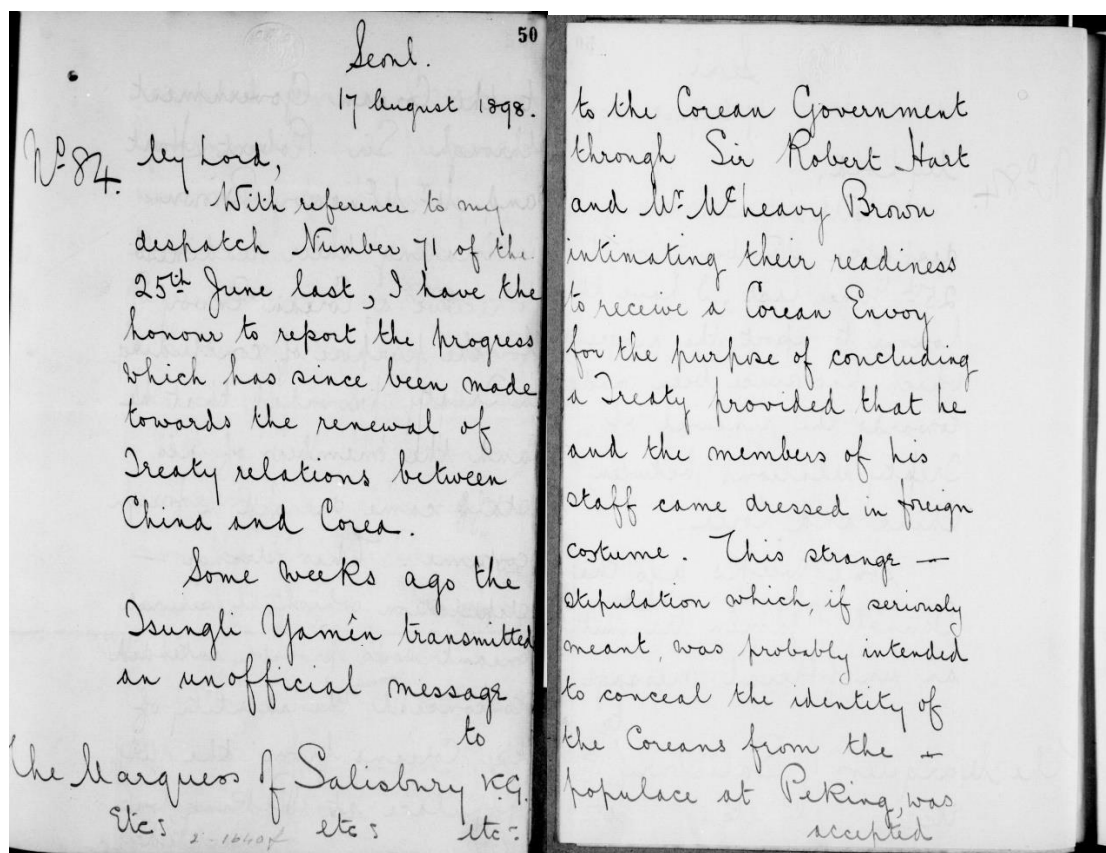 50
Seoul.
17 August 1898.
No. 84.
My Lord,
With reference to my
despatch Number 71 of the
25th June last, I have the
honour to report the progress
which has since been made
towards the renewal of
Treaty relations between
China and Corea.
Some weeks ago the
Tsungli Yamên transmitted
an unofficial message
to
The Marquess of Salisbury KG.
etc: etc: etc:
to the Corean Government
through Sir Robert Hart
and Mr. McLeavy Brown
intimating their readiness
to receive a Corean Envoy
for the purpose of concluding
a Treaty provided that he
and the members of his
staff came dressed in foreign
costume. This strange —
stipulation which, if seriously
meant, was probably intended
to conceal the identity of
the Coreans from the —
populace at Peking, was
accepted